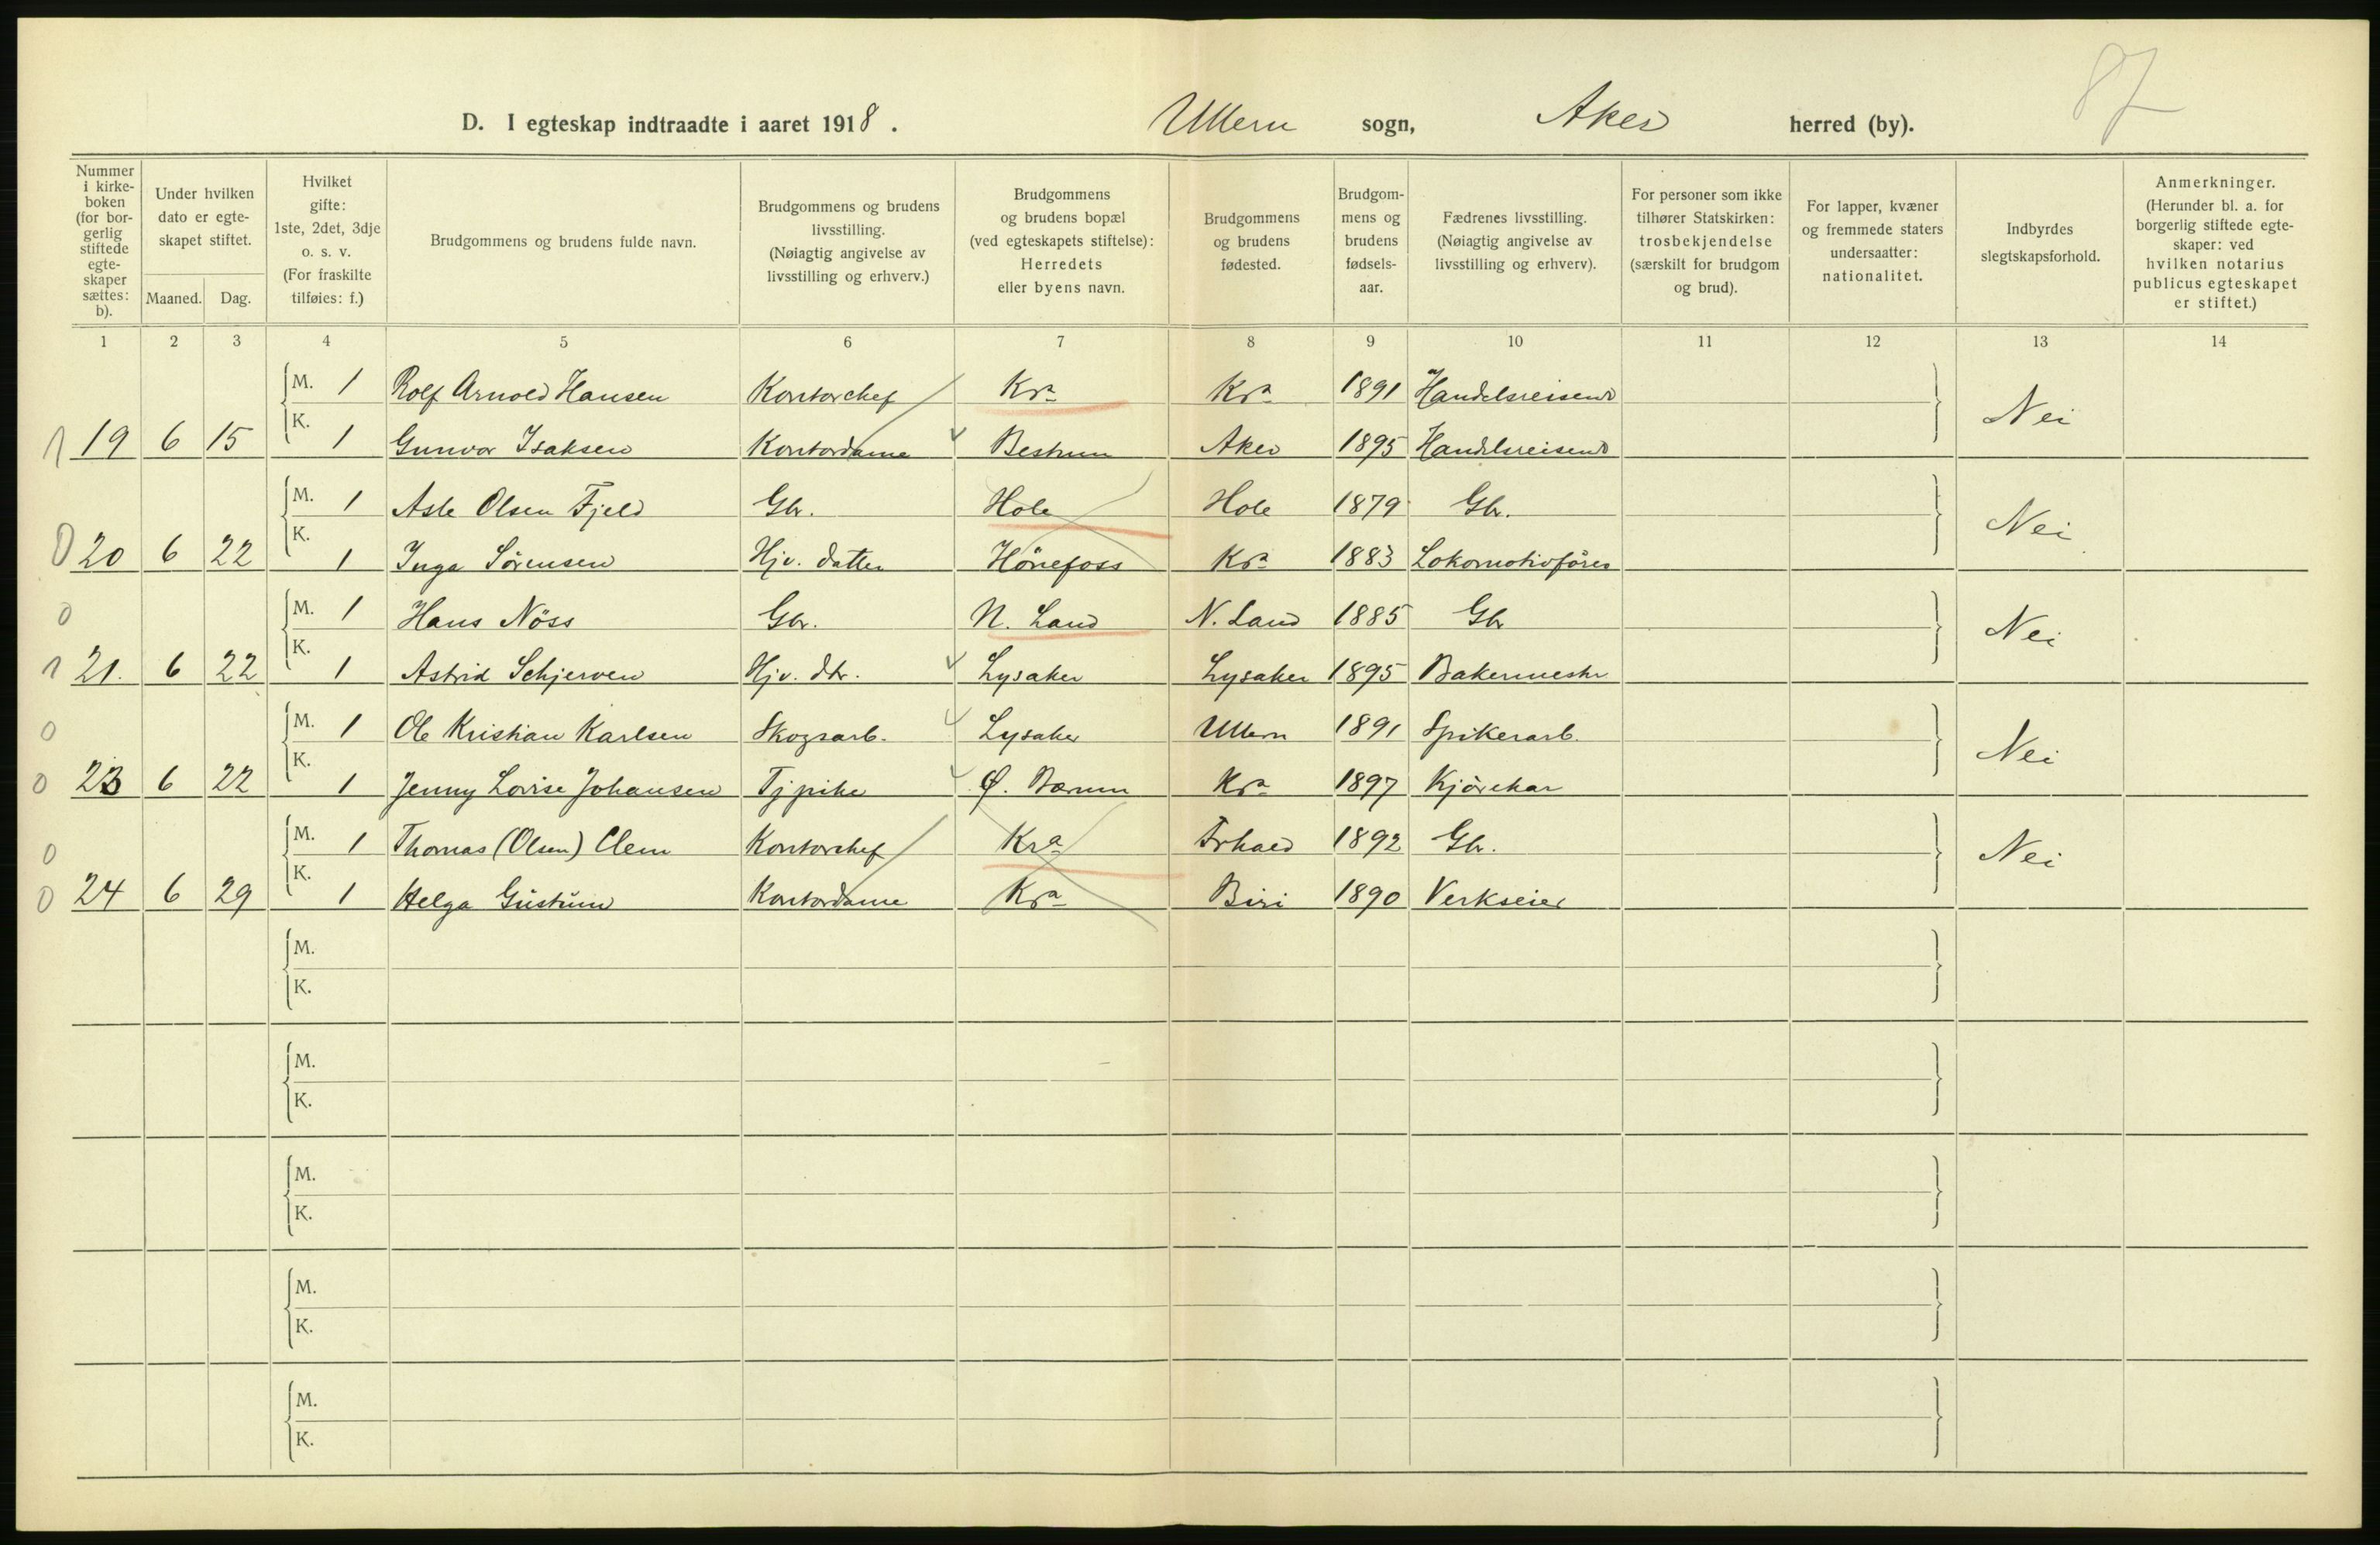 87
D. I egteskap indtraadte i aaret 1918. Ullern sogn, Aker herred (by).
Nummer i kirke-boken (for bor-gerlig stiftede egte-skaper sættes: b).
Under hvilken dato er egte-skapet stiftet.
Maaned. Dag.
Hvilket gifte: 1ste, 2det, 3dje o. s. v. (For fraskilte tilføies: f.)
Brudgommens og brudens fulde navn.
Brudgommens og brudens livsstilling. (Nøiagtig angivelse av livsstilling og erhverv.)
Brudgommens og brudens bopæl (ved egteskapets stiftelse): Herredets eller byens navn.
Brudgommens og brudens fødested.
Brudgom-mens og brudens fødsels-aar.
Fædrenes livsstilling. (Nøiagtig angivelse av livsstilling og erhverv).
For personer som ikke tilhører Statskirken: trosbekjendelse (særskilt for brudgom og brud).
For lapper, kvæner og fremmede staters undersaatter: nationalitet.
Indbyrdes slegtskapsforhold.
Anmerkninger. (Herunder bl. a. for borgerlig stiftede egte-skaper: ved hvilken notarius publicus egteskapet er stiftet.)
1 2 3 4 5 6 7 8 9 10 11 12 13 14
M. 1 Rolf Arnold Hansen Kontorchef Kra Kra 1891 Handelsreisend Nei
1 19 6 15 K. 1 Gunvor Isaksen Kontordame Bestum Aker 1895 Handelsreisend
M. 1 Asle Olsen Fjeld Gbr. Hole Hole 1879 Gbr. Nei
0 20 6 22 K. 1 Inga Sørensen Hjv. datter Hönefoss Kra 1883 Lokomotivförer
0 M. 1 Hans Nöss Gbr. N. Land N. Land 1885 Gbr Nei
1 21. 6 22 K. 1 Astrid Schjerven Hjv. dtr. Lysaker Lysaker 1895 Bakermestr
0 M. 1 Ole Kristian Karlsen Skogsarb. Lysaker Ullern 1891 Spikerarb. Nei
0 23 6 22 K. 1 Jenny Lovise Johansen Tj pike Ø. Bærum Kra 1897 Kjörekar
0 M. 1 Thomas (Olsen) Clem Kontorchef Kra 1892 Gbr. Nei
0 24 6 29 K. 1 Helga Güstüm Kontordame Kra Biri 1890 Verkseier
M.
K.
M.
K.
M.
K.
M.
K.
M.
K.